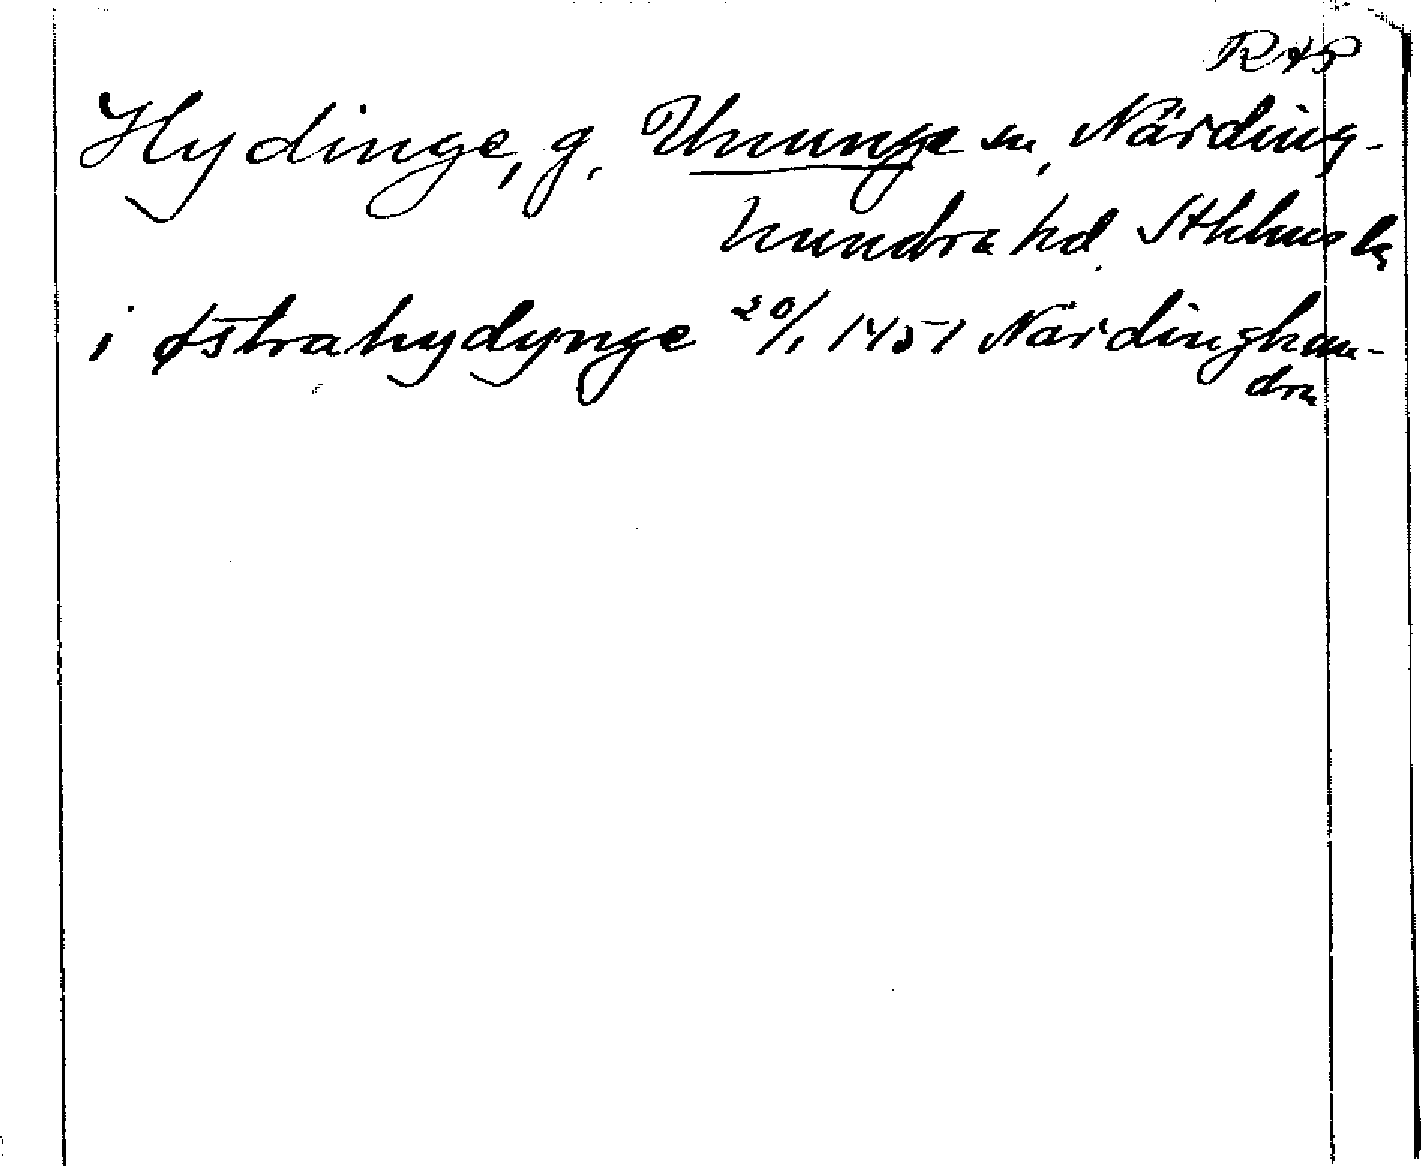 RAP
Hydinge, g. Ununge sn, Närding-
hundra hd. Sthlms l.
i østrahydynge 20/1 1451 Närdinghun-
dra